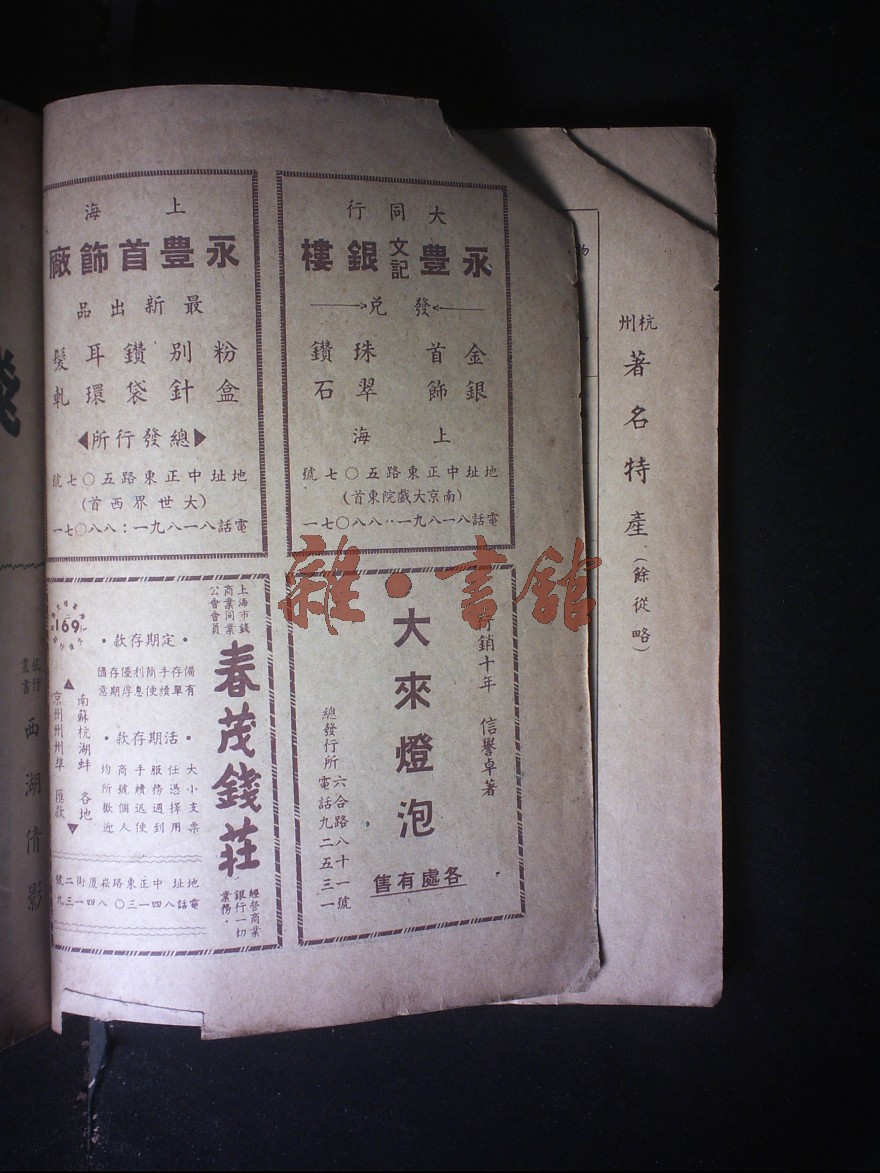 大同行
永豐文記銀樓
發兌
金銀首飾
珠翠鑽石
上海
地址中正東路五〇七號
(南京大戲院東首)
電話八一八一九··八八〇七一
上海
永豐首飾廠
最新出品
粉盒
別針
鑽袋
耳環
髮軋
總發行所
地址中正東路五〇七號
(大世界西首)
電話八一八一九:八八〇七一
行銷十年 信譽卓著
大來燈泡
各處有售
總發行所六合路八十一號
電話九二五三一
上海市錢
商業同業
公會會員
春茂錢莊
經營商業
銀行一切
業務·
169
·定期存款·
備有存單
手續簡便
利息優厚
存期
·活期存款·
大小支票
任憑擇用
服務週到
手續迅便
商號個人
均所歡迎
南京
蘇州
杭州
湖州
蚌埠
各地
匯款
地址 中正東路崧廈街二號
電話八四一三〇 八四一三九
杭州
著名特產(餘從略)
物
西湖倩影
雜·書館